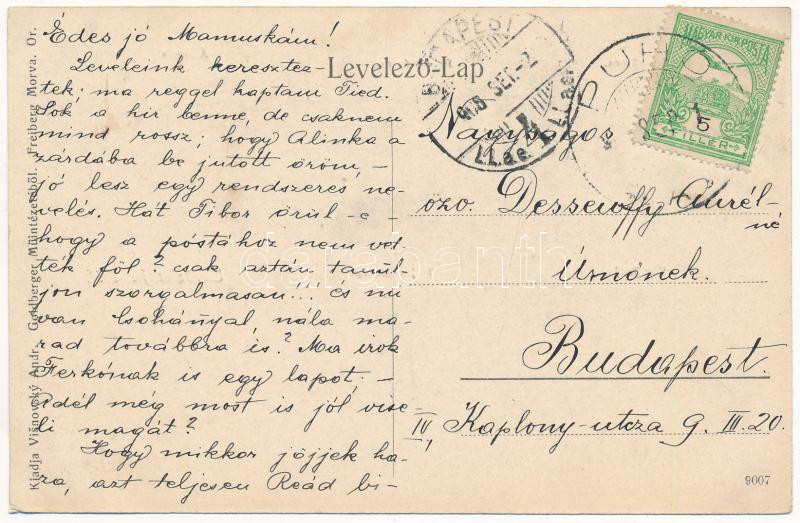 Édes jó Mamuskám!
Leveleink keresztez-
tek; ma reggel kaptam Tied.
Sok a hir benne, de csaknem
mind rossz; hogy Alinka a
zárdába be jutott öröm, –
jó lesz egy rendszeres ne-
velés. Hát Tibor örül-e –
hogy a póstához nem vet-
ték föl? csak aztán tanúl-
jon szorgalmasan...! és mi
van Csohányal, nála ma-
rad továbbra is? Ma irok
Ferkónak is egy lapot; –
Adél még most is jól vise-
li magát?
Hogy mikkor jöjjek ha-
za, azt teljesen Reád bi-
Levelező-Lap
BUDAPEST
918 SET. -2
PUHÓ
MAGYAR KIR. POSTA
5
FILLÉR
Nagyságos
özv. Dessewffy Aurél-
né
Úrnőnek.
Budapest.
IV, Kaplony-utcza 9. III. 20.
9007
Kiadja Višnowský Andr. Goldberger Műintézetéből. Freiberg Morva. Or.
darabanth